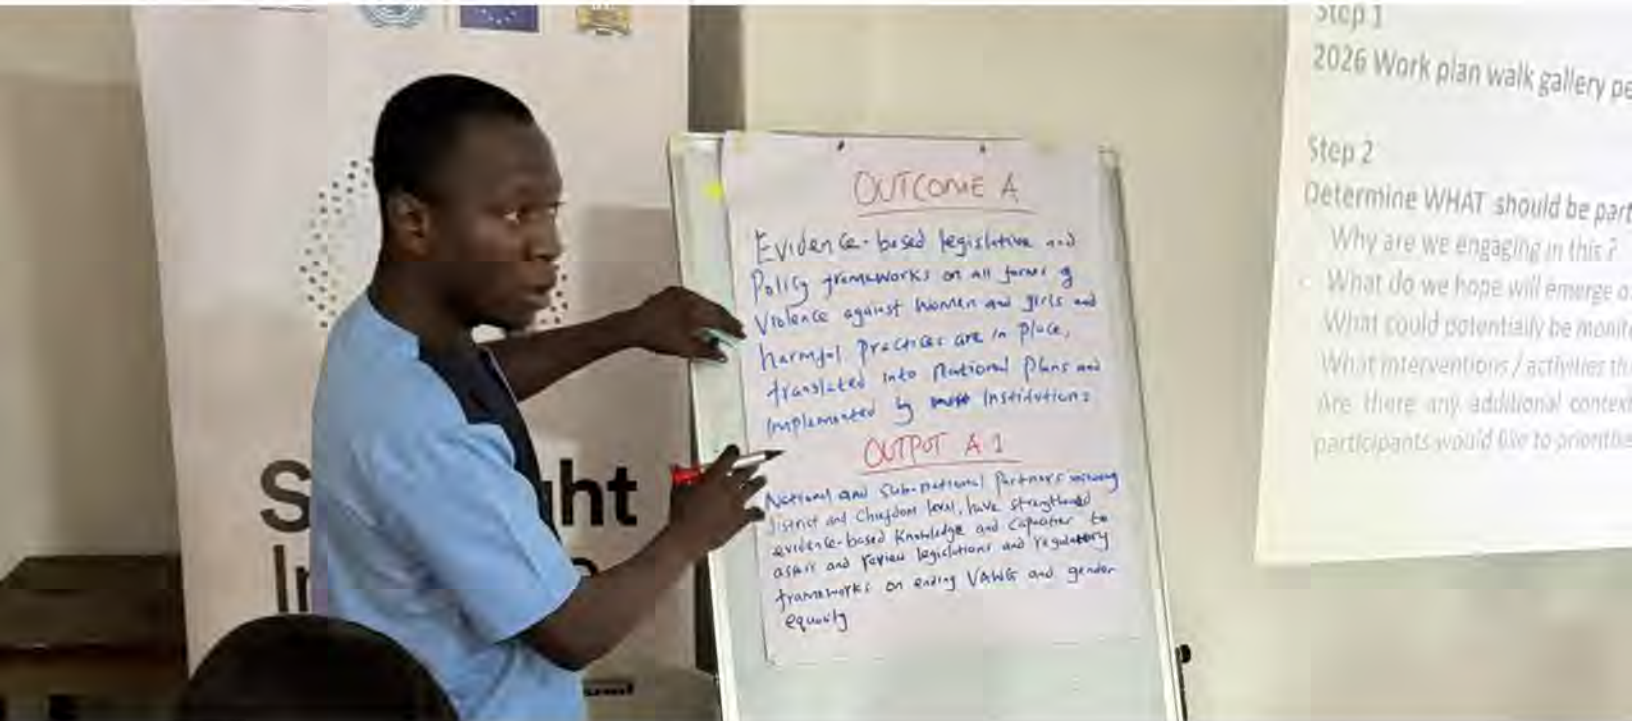 OUTCOME A
Evidence-based legislative and
Policy frameworks on all forms of
Violence against women and girls and
harmful practices are in place,
translated into national plans and
implemented by institutions
OUTPUT A 1
National and Sub-national Partners including
district and Chiefdom level, have strengthened
evidence-based knowledge and capacities to
assess and review legislations and regulatory
frameworks on ending VAWG and gender
equality
Step 1
2026 Work plan walk gallery
Step 2
Determine WHAT should be part
Why are we engaging in this ?
What do we hope will emerge
What could potentially be
What interventions / activities
Are there any additional
participants would like to
S ght
In